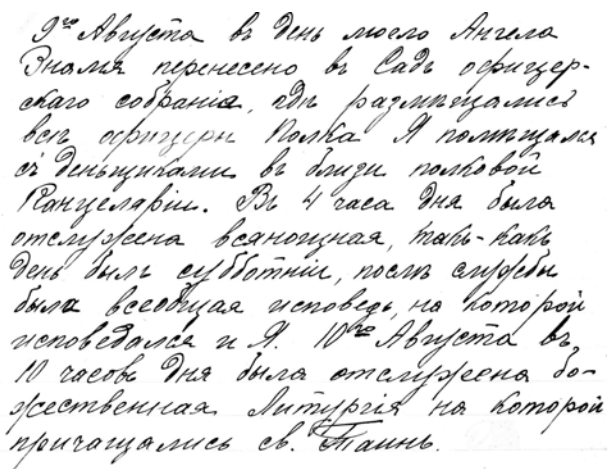 9го Августа въ день моего Ангела
Знамя перенесено въ Садъ офицер-
скаго собранія, гдѣ размѣщались
всѣ офицеры Полка Я помѣщался
съ деньщиками въ близи полковой
Канцеляріи. Въ 4 часа дня была
отслужена всянощная, такъ-какъ
день былъ субботніи, послѣ службы
была всеобщая исповедь, на которой
исповедался и Я. 10го Августа въ
10 часовъ дня была отслужеена бо-
жественная Литургія на которой
причащались св. Таинъ.